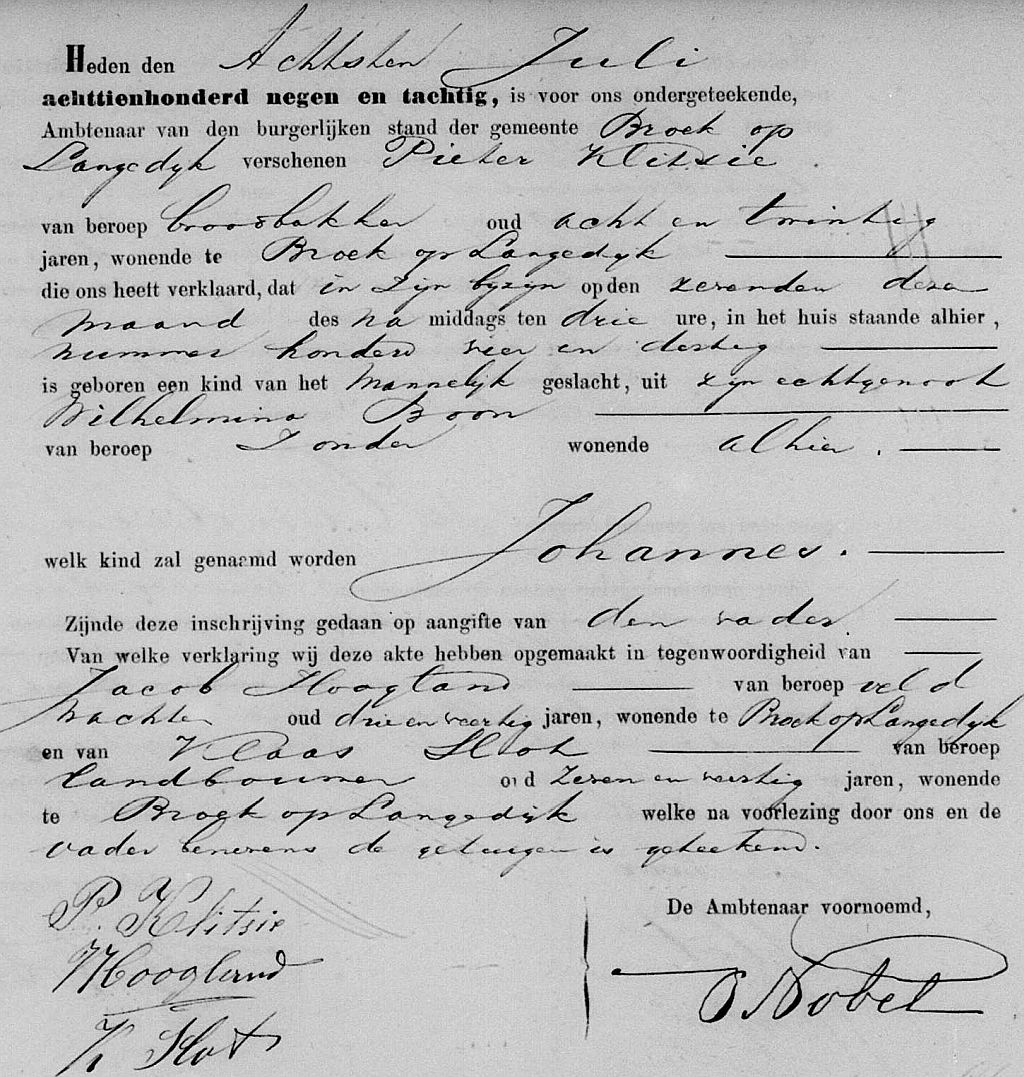 Heden den Achtsten Juli
achttienhonderd negen en tachtig, is voor ons ondergeteekende,
Ambtenaar van den burgerlijken stand der gemeente Broek op
Langedyk verschenen Pieter Klitsie.
van beroep broodbakker oud acht en twintig
jaren, wonende te Broek op Langedyk
die ons heeft verklaard, dat in zyn byzyn op den zevenden deser
maand des na middags ten drie ure, in het huis staande alhier,
nummer honderd vier en dertig
is geboren een kind van het Mannelyk geslacht, uit zyn echtgenoot
Wilhelmina Boon
van beroep Zonder wonende alhier.
welk kind zal genaamd worden Johannes.
Zijnde deze inschrijving gedaan op aangifte van den vader.
Van welke verklaring wij deze akte hebben opgemaakt in tegenwoordigheid van
Jacob Hoogland van beroep veld
wachter oud drie en veertig jaren, wonende te Broek op Langedyk
en van Klaas Slot van beroep
landbouwer oud zeven en veertig jaren, wonende
te Broek op Langedijk welke na voorlezing door ons en de
vader benevens de getuigen is geteekend.
De Ambtenaar voornoemd,
P. Klitsie
Hoogland
K Slot
Nobel